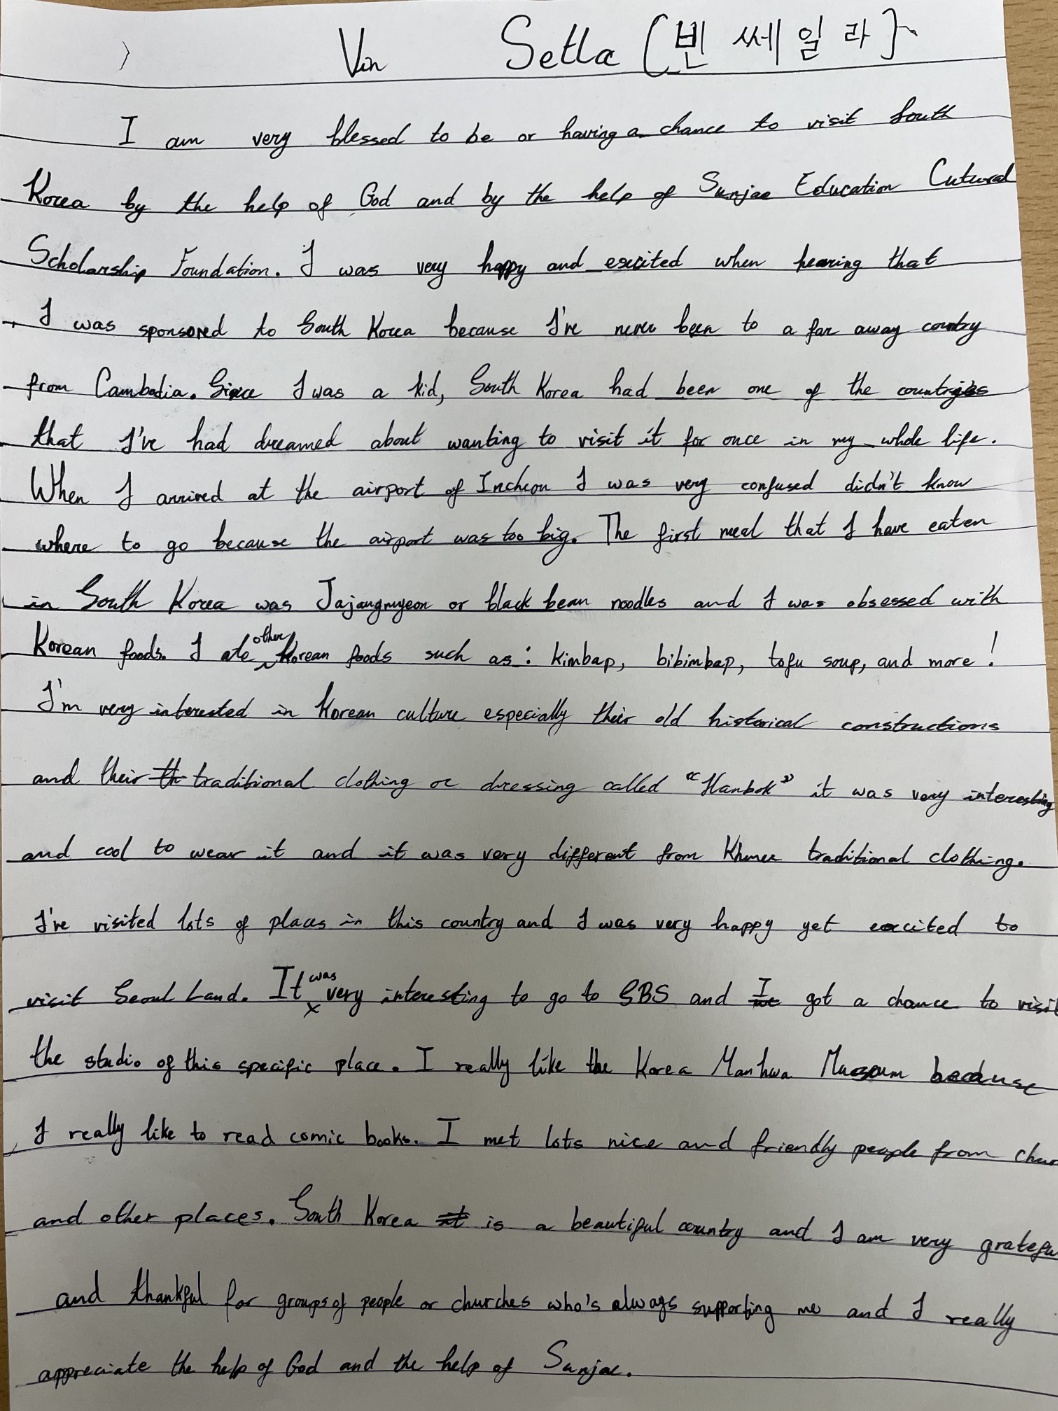 Vin Setla (빈 쎄일라)
I am very blessed to be or having a chance to visit South
Korea by the help of God and by the help of Sunjae Education Cutural
Scholarship Foundation. I was very happy and excited when hearing that
I was sponsored to South Korea because I've never been to a far away country
from Cambodia. Since I was a kid, South Korea had been one of the countries
that I've had dreamed about wanting to visit it for once in my whole life.
When I arrived at the airport of Incheon I was very confused didn't know
where to go because the airport was too big. The first meal that I have eaten
in South Korea was Jajangmyeon or black bean noodles and I was obsessed with
Korean foods. I ate other Korean foods such as : kimbap, bibimbap, tofu soup, and more !
I'm very interested in Korean culture especially their old historical constructions
and their traditional clothing or dressing called "Hanbok" it was very interesting
and cool to wear it and it was very different from Khmer traditional clothing.
I've visited lots of places in this country and I was very happy yet excited to
visit Seoul Land. It was very interesting to go to SBS and I got a chance to visit
the studio of this specific place. I really like the Korea Manhwa Museum because
I really like to read comic books. I met lots nice and friendly people from chur
and other places. South Korea is a beautiful country and I am very gratefu
and thankful for groups of people or churches who's always supporting me and I really
appreciate the help of God and the help of Sunjae.